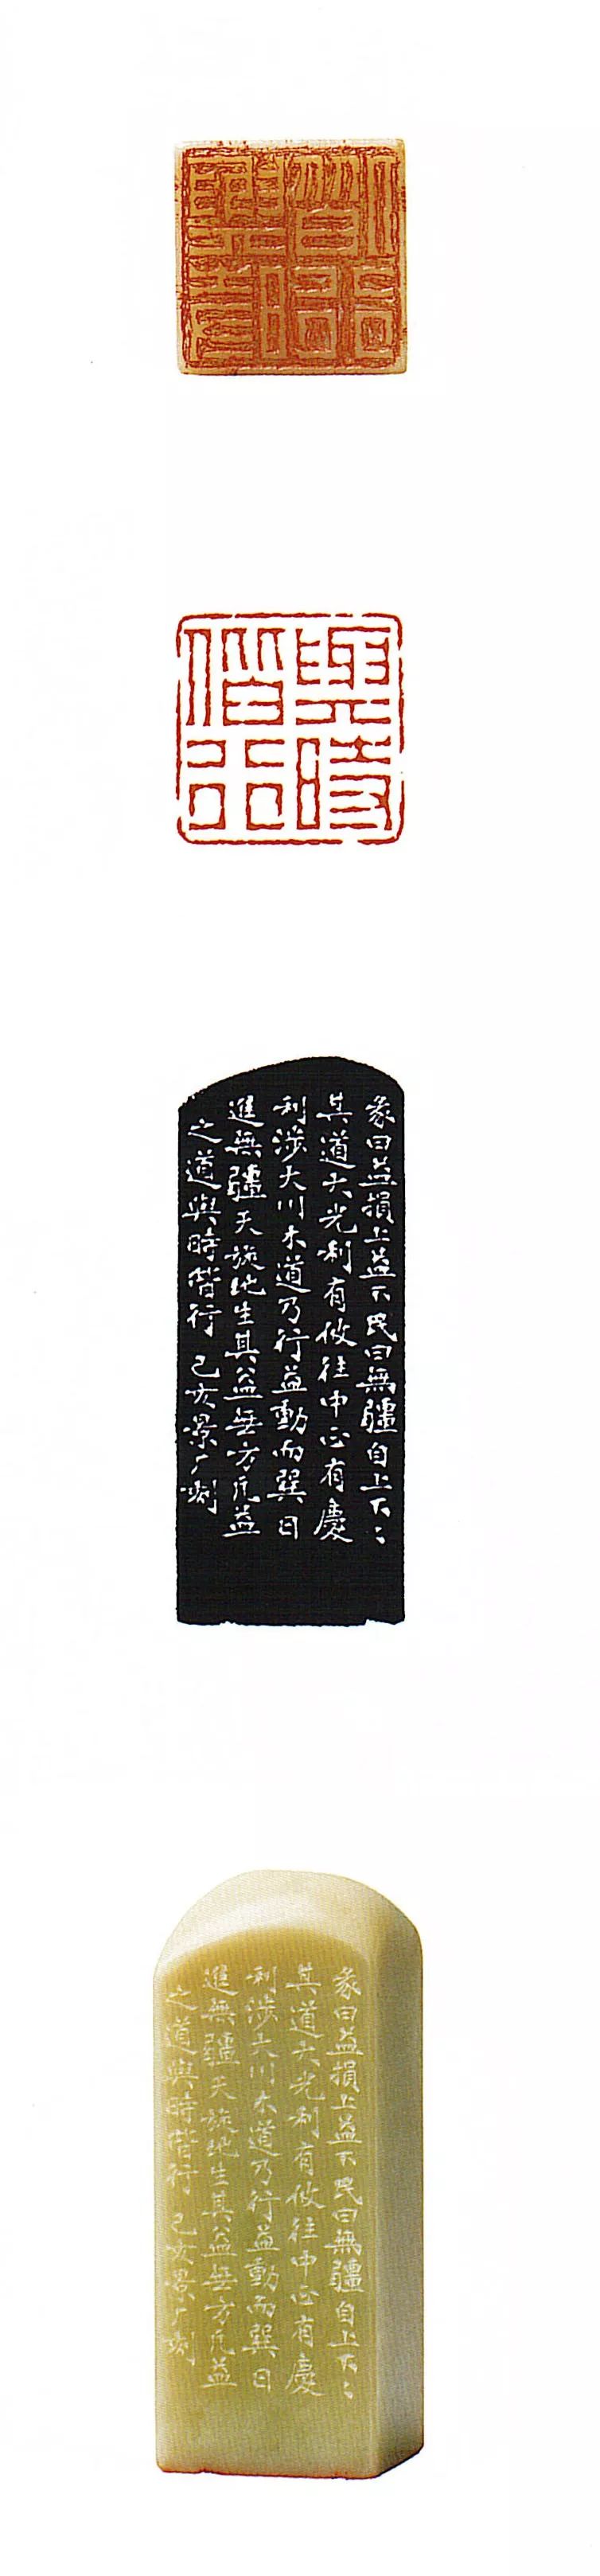 與時
偕行
與時
偕行
彖曰益損上益下民曰無疆自上下〻
其道大光利有攸往中正有慶
利涉大川木道乃行益動而巽日
進無疆天施地生其益無方凡益
之道與時偕行 己亥景厂刻
彖曰益損上益下民曰無疆自上下〻
其道大光利有攸往中正有慶
利涉大川木道乃行益動而巽日
進無疆天施地生其益無方凡益
之道與時偕行 己亥景厂刻